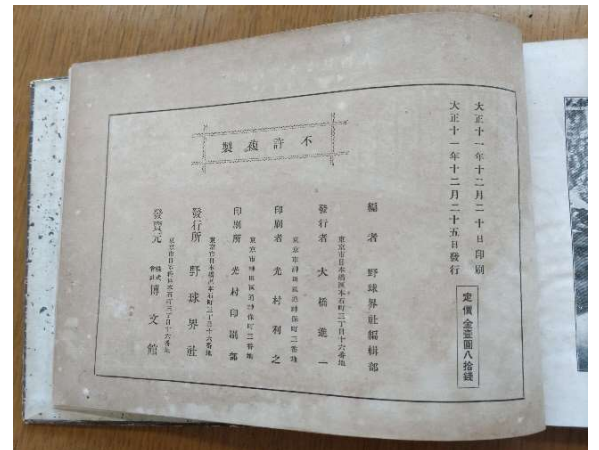 大正十一年十二月二十日印刷
大正十一年十二月二十五日發行
定價金壹圓八拾錢
不許複製
編者 野球界社編輯部
東京市日本橋區本石町三丁目十六番地
發行者 大橋進一
東京市神田區通神保町二番地
印刷者 光村利之
東京市神田區通神保町二番地
印刷所 光村印刷部
東京市日本橋區本石町三丁目十六番地
發行所 野球界社
東京市日本橋區本石町三丁目十六番地
發賣元 株式會社 博文館